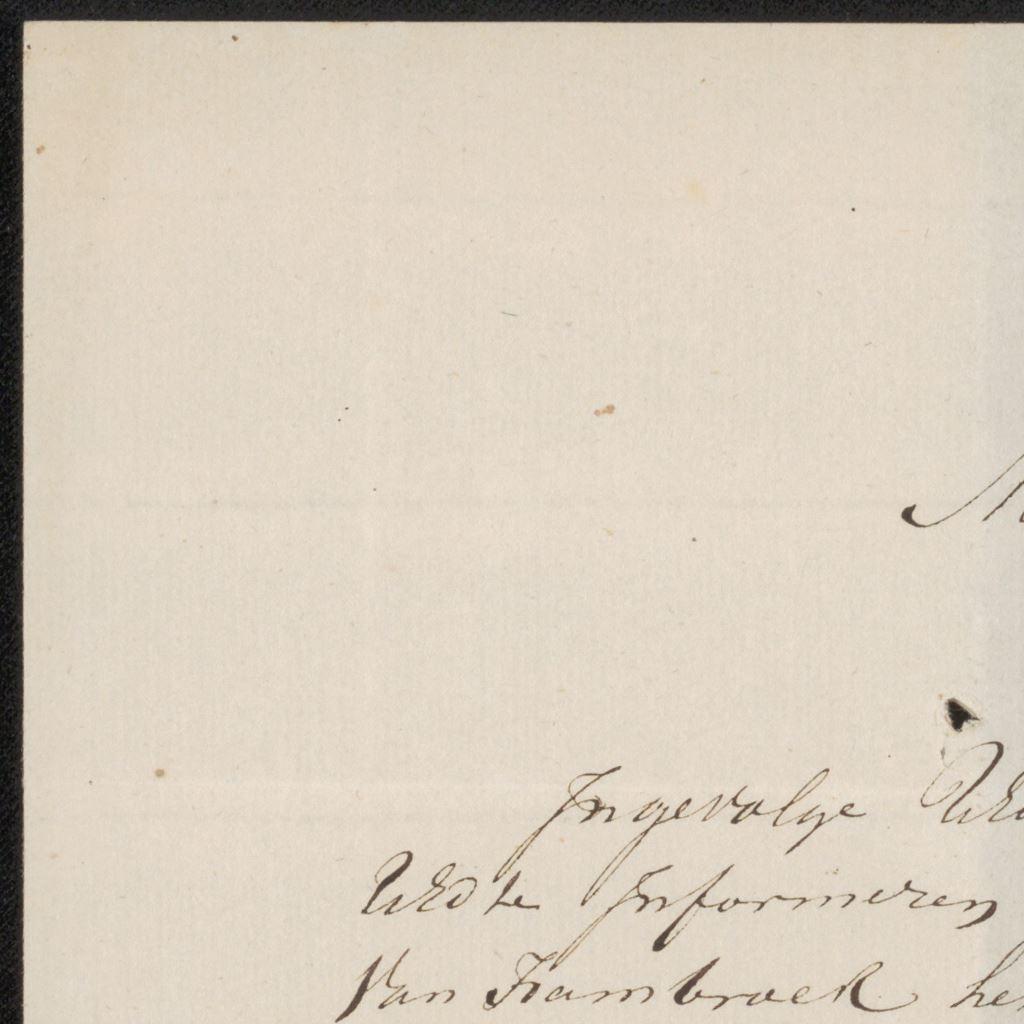 Ingevolge UEd
UEd te Informeren
Van Hambroek he